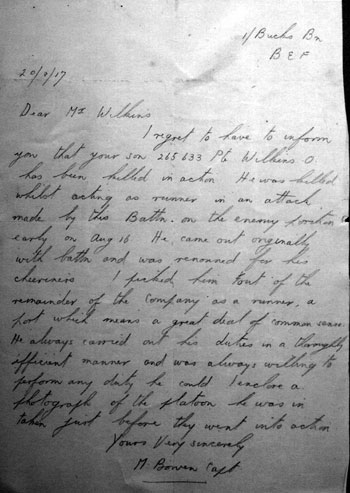 1/ Bucks Bn
B E F
20/8/17
Dear Mr Wilkins
I regret to have to inform
you that your son 265633 Pte Wilkins O
has been killed in action He was killed
whilst acting as runner in an attack
made by this Battn. on the enemy position
early on Aug 16 He came out originally
with battn and was renowned for his
cheeriness I picked him out of the
remainder of the company as a runner, a
post which means a great deal of common sense.
He always carried out his duties in a thoroughly
efficient manner and was always willing to
perform any duty he could I enclose a
photograph of the platoon he was in
taken just before they went into action
Yours Very sincerely
M. Bowen Capt